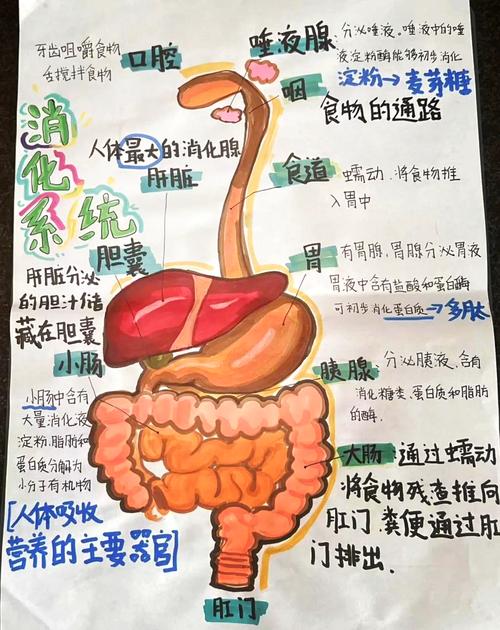 消化系统
牙齿咀嚼食物
舌搅拌食物
口腔
唾液腺
分泌唾液。唾液中的唾
液淀粉酶能够初步消化
淀粉→麦芽糖
咽
食物的通路
人体最大的消化腺
肝脏
食道
蠕动.将食物推
入胃中
胆囊
肝脏分泌
的胆汁储
藏在胆囊
胃
有胃腺,胃腺分泌胃液
胃液中含有盐酸和蛋白酶
可初步消化蛋白质→多肽
小肠
小肠中含有
大量消化液
淀粉.脂肪和
蛋白质分解为
小分子有机物
[人体吸收
营养的主要器官]
胰腺
分泌胰液,含有
消化糖类.蛋白质和脂肪
的酶.
大肠
通过蠕动
将食物残查推向
肛门.粪便通过肛
门排出.
肛门